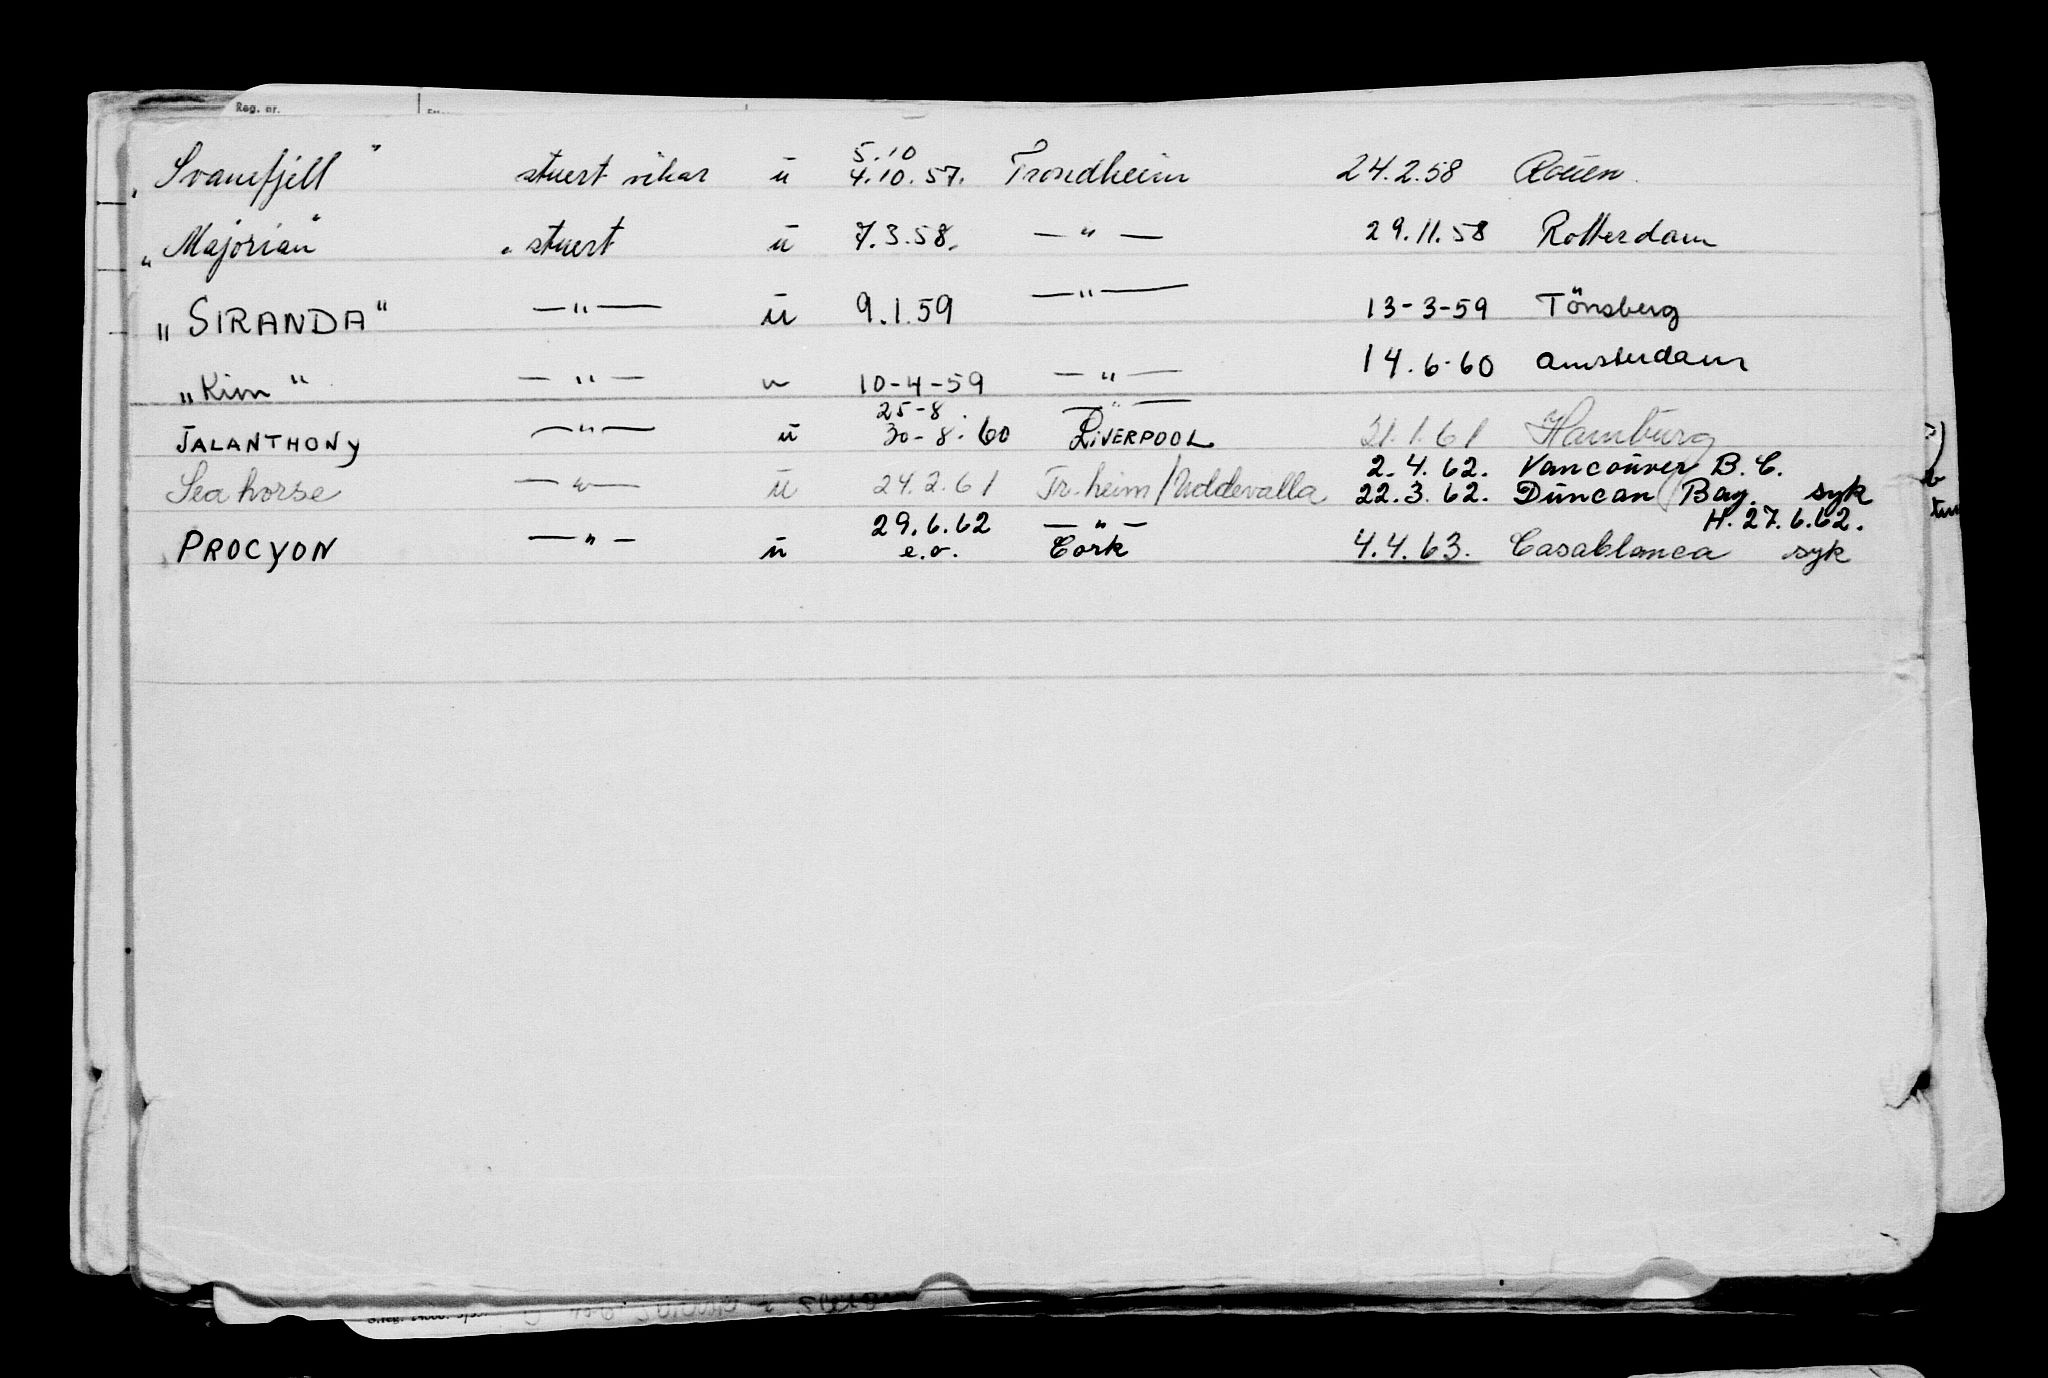 Reg. nr.
„Svanefjell" stuert vikar ŭ 5.10 4.10.57. Trondheim 24.2.58 Roŭen
„Majorian" stuert ŭ 7.3.58. — " — 29.11.58 Rotterdam
„SIRANDA" — " — ŭ 9.1.59 — " — 13-3-59 Tönsberg
„Kim" — " — u 10-4-59 — " — 14.6.60 Amsterdam
JALANTHONY — " — ŭ 25-8. 30-8.60 — " — LIVERPOOL 31.1.61 Hamburg
Sea horse — " — ŭ 24.2.61 Tr.heim/Uddevalla 2.4.62. Vancoŭver B.C.
22.3.62. Dŭncan Bay. syk
H. 27.6.62.
PROCYON — " — ŭ 29.6.62 — " —
e.o. Cork 4.4.63. Casablanca syk